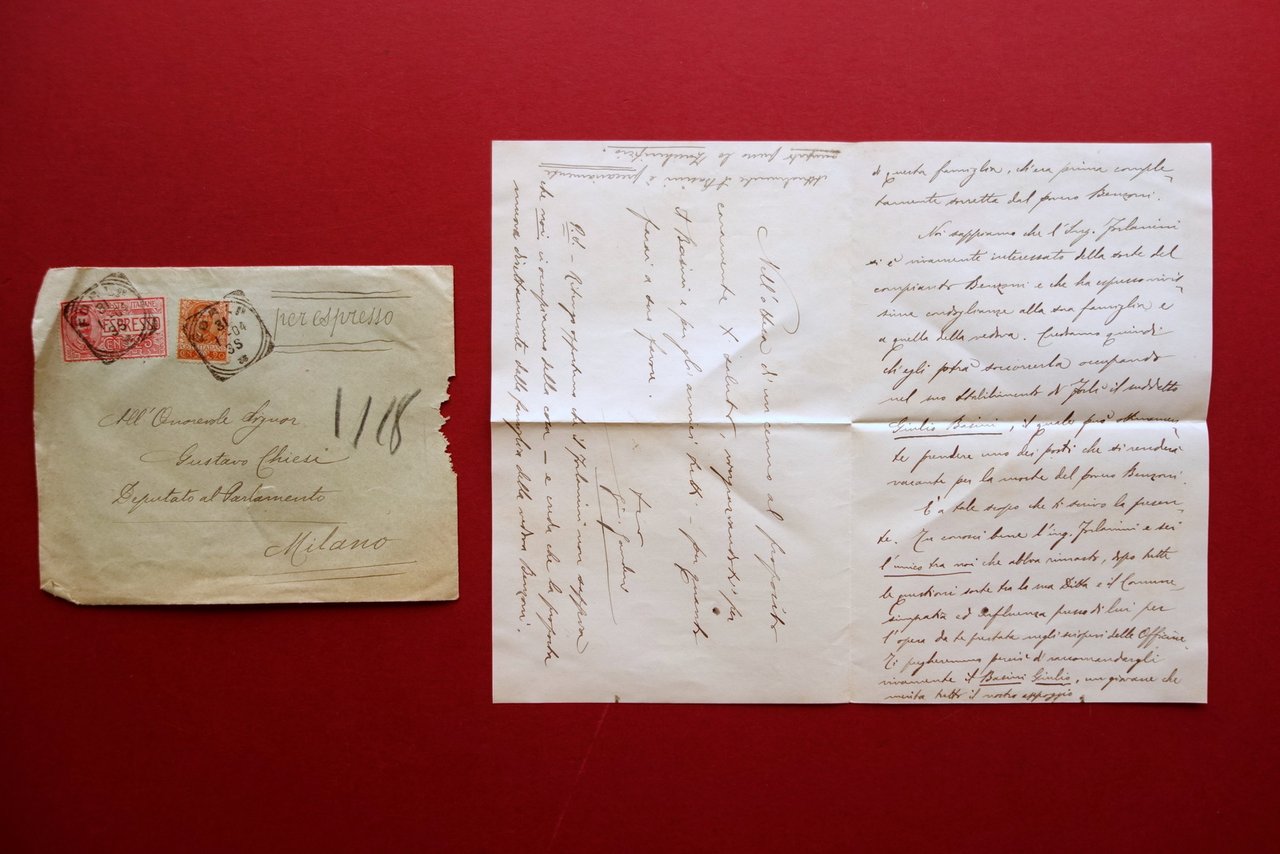 POSTE ITALIANE
ESPRESSO
per espresso
1/18
All'Onorevole Signor
Gustavo Chiesi
Deputato al Parlamento
Milano
di questa famiglia, ch'era prima comple-
tamente sorretta dal povero Benzoni.
Noi sappiamo che l'Ing. Forlanini
si è vivamente interessato della sorte del
compianto Benzoni e che ha espresso vivis-
sime condoglianze alla sua famiglia e
a quella della vedova. Crediamo quindi
ch'egli potrà soccorrerla occupando
nel suo Stabilimento di Forlì il suddetto
Giulio Basini, il quale può
te prendere uno dei posti che si renderà
vacante per la morte del povero Benzoni.
È a tale scopo che ti scrivo la presen-
te. Tu conosci bene l'ing. Forlanini e sei
l'unico tra noi che abbia rimasto, dopo tutte
le questioni sorte tra la sua Ditta e il Comune,
simpatia ed influenza presso di lui per
l'opera da te prestata negli scioperi delle Officine.
Ti pregheremmo perciò di raccomandargli
vivamente il Basini Giulio, un giovane che
merita tutto il nostro appoggio.
Nell'attesa d'un cenno al proposito
caramente ti saluto, ringraziandoti per
il Basini e per gli amici tutti – per quanto
farai a suo favore.
tuo
P.S. – Ritengo opportuno che il Forlanini non sappia
che noi ci occupiamo della cosa – e creda che la proposta
muova direttamente dalla famiglia della vedova Benzoni.
Attualmente il Basini è precariamente
occupato presso lo Zuccherificio.